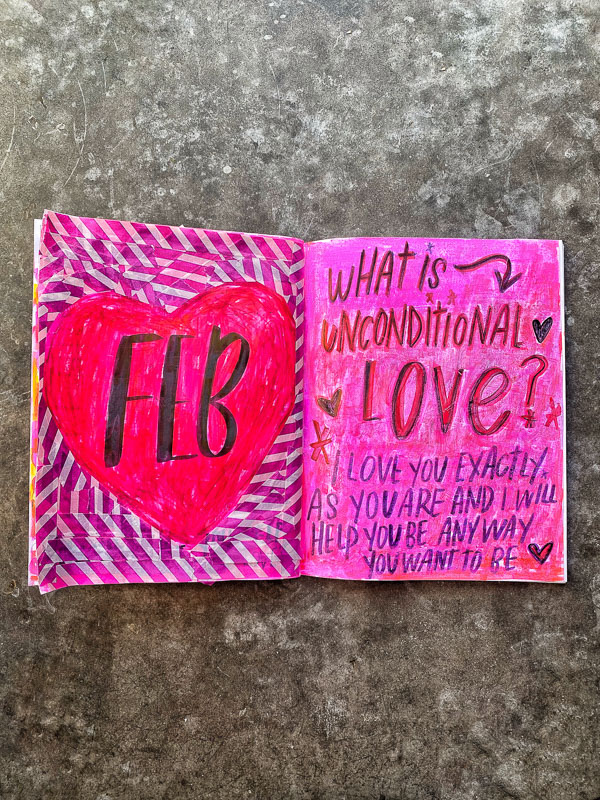 FEB
WHAt iS
UNCONDItIONAL
LOVe?
I LOVE YOU EXACTLY,
AS YOU ARE AND I WILL
HELP YOU BE ANY WAY
YOU WANT TO BE